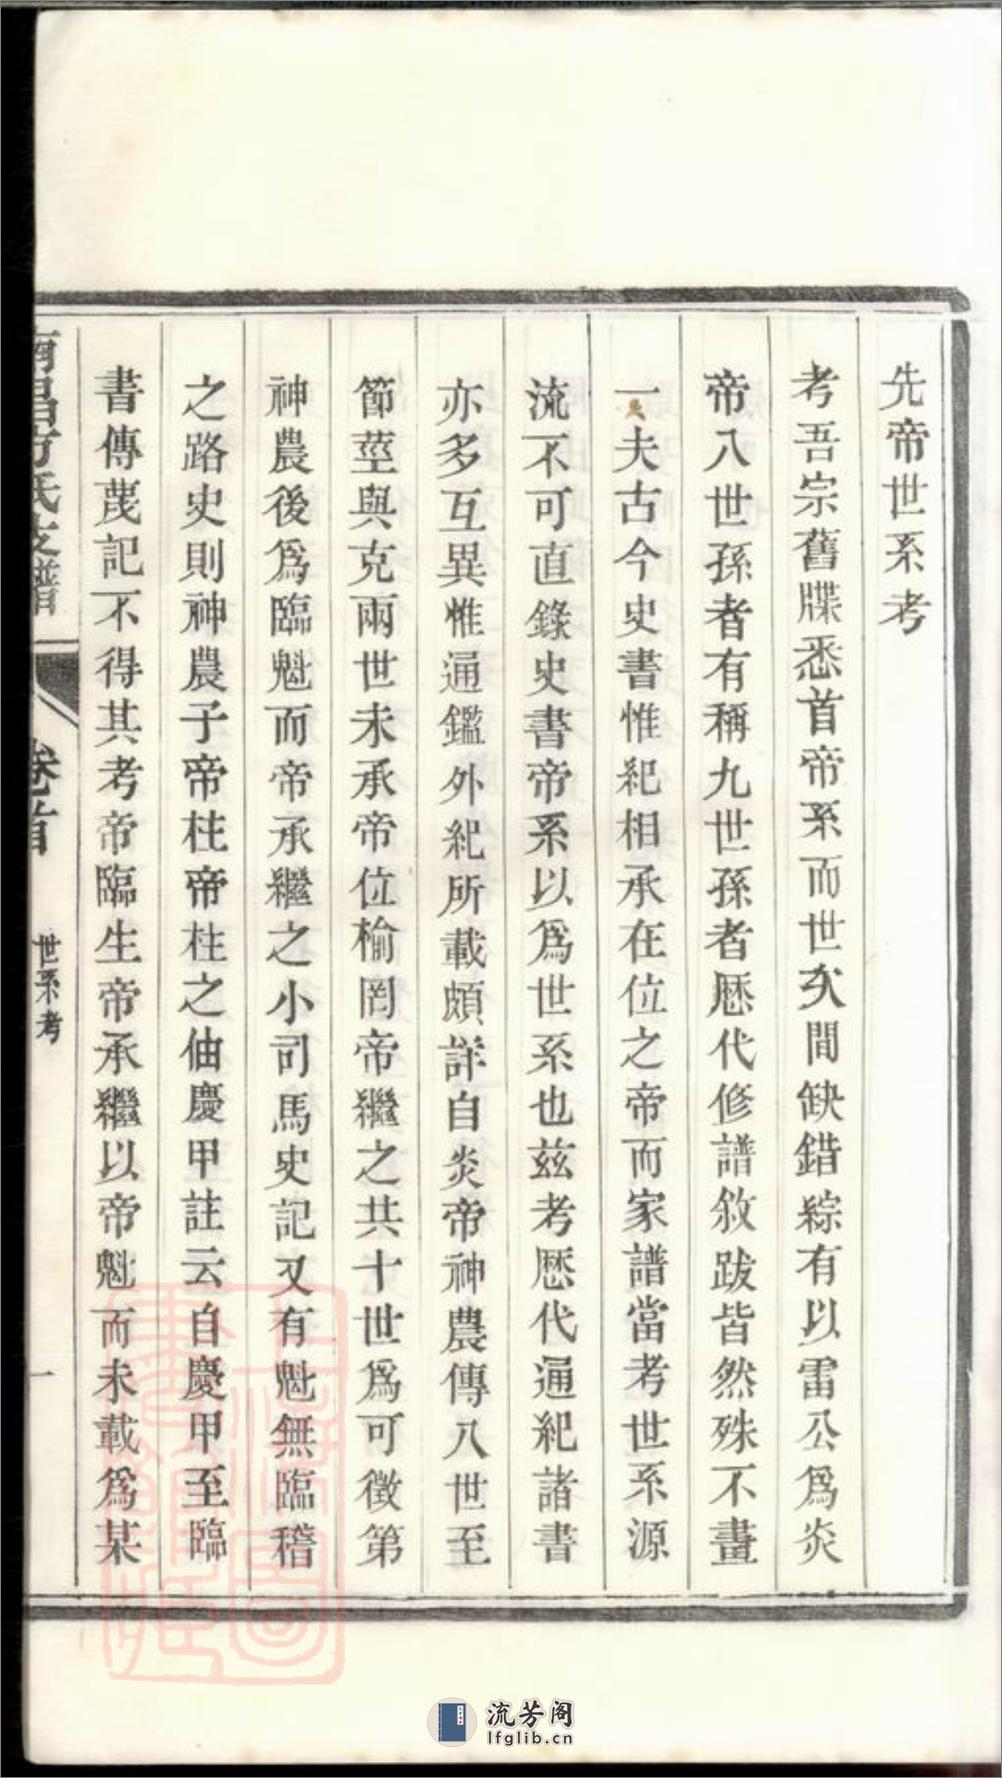 先帝世系考
考吾宗舊牒悉首帝系而世次間缺錯綜有以雷公為炎
帝八世孫者有稱九世孫者歷代修譜敘跋皆然殊不畫
一夫古今史書惟紀相承在位之帝而家譜當考世系源
流不可直錄史書帝系以為世系也茲考歷代通紀諸書
亦多互異惟通鑑外紀所載頗詳自炎帝神農傳八世至
節莖與克兩世未承帝位榆罔帝繼之共十世為可徵第
神農後為臨魁而帝承繼之小司馬史記又有魁無臨稽
之路史則神農子帝柱帝柱之伷慶甲註云自慶甲至臨
書傳蔑記不得其考帝臨生帝承繼以帝魁而未載為某
南昌方氏支譜
卷首
世系考
一
流芳阁
lfglib.cn